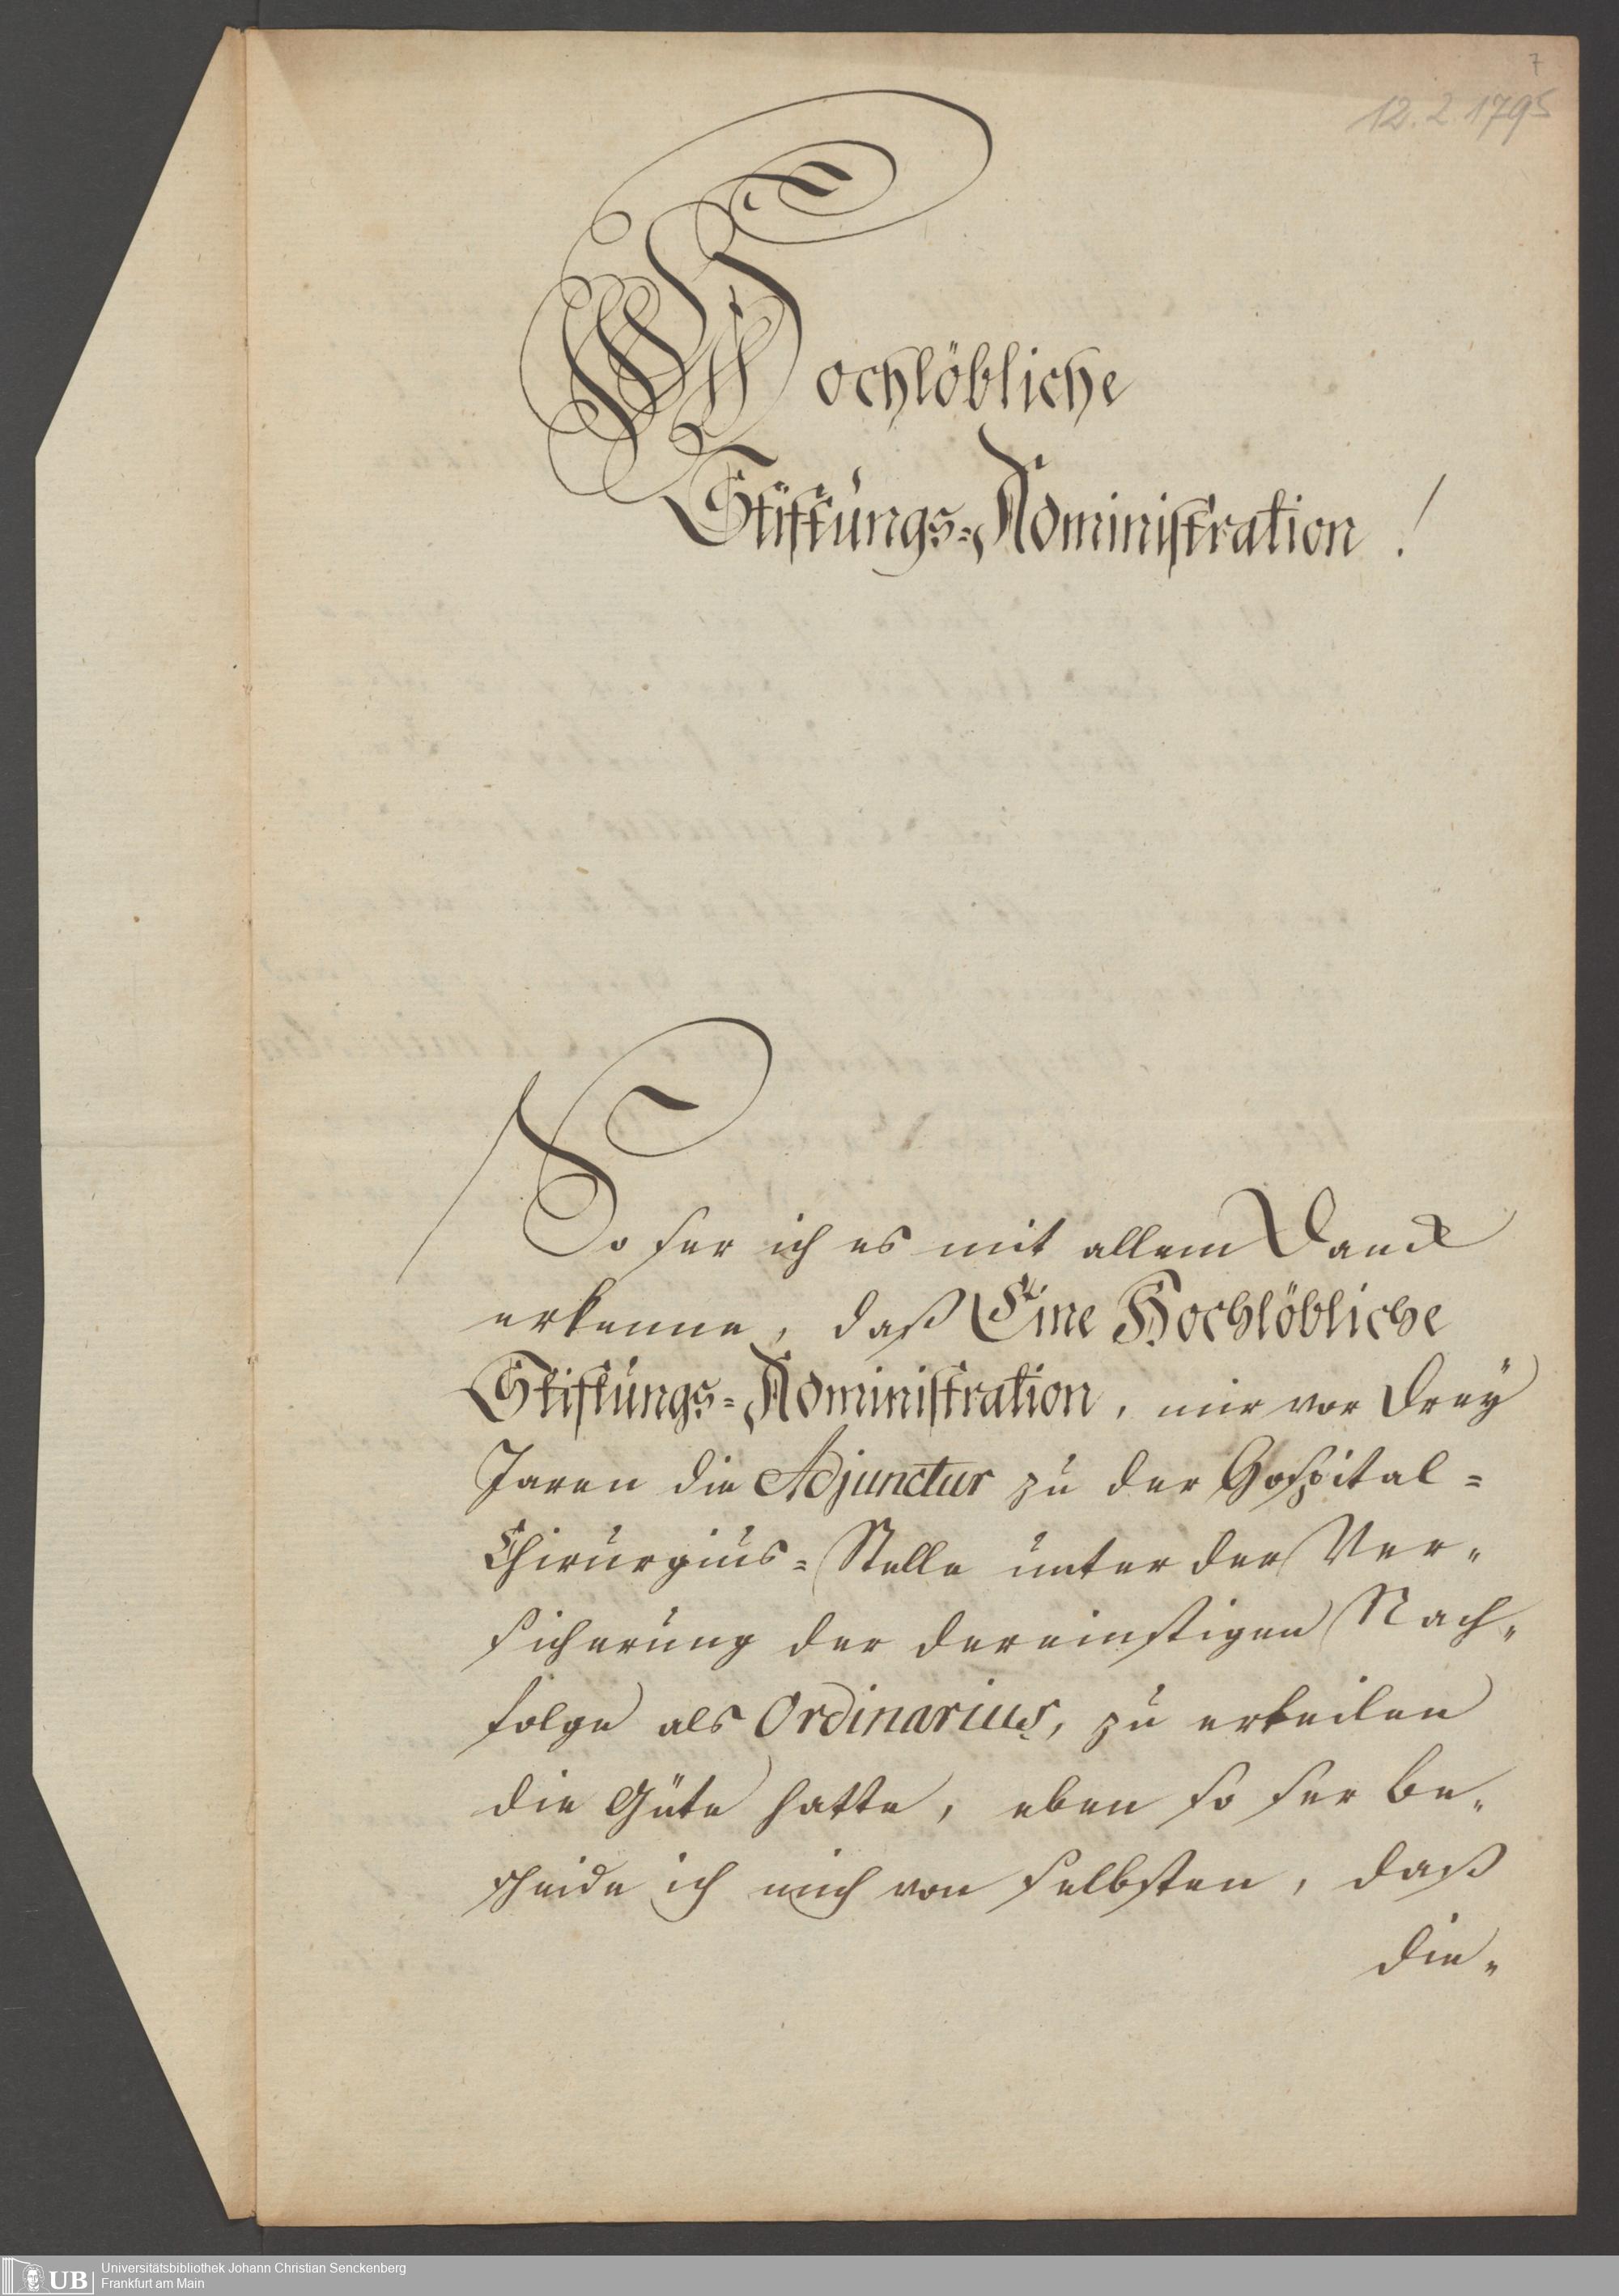 7
12. 2 1795
Hochlöbliche
Stiftungs=Administration!
So ser ich es mit allem Danck
erkenne, daß Eine Hochlöbliche
Stiftungs=Administration, mir vor drey
Jaren die Adjunctur zu der Hospital=
Chirurgius=Stelle unter der Ver„
sicherung der dereinstigen Nach„
folge als Ordinarius, zu erteilen
die Güte hatte, eben so ser be„
scheide ich mich von selbsten, daß
die„
UB Universitätsbibliothek Johann Christian Senckenberg
Frankfurt am Main